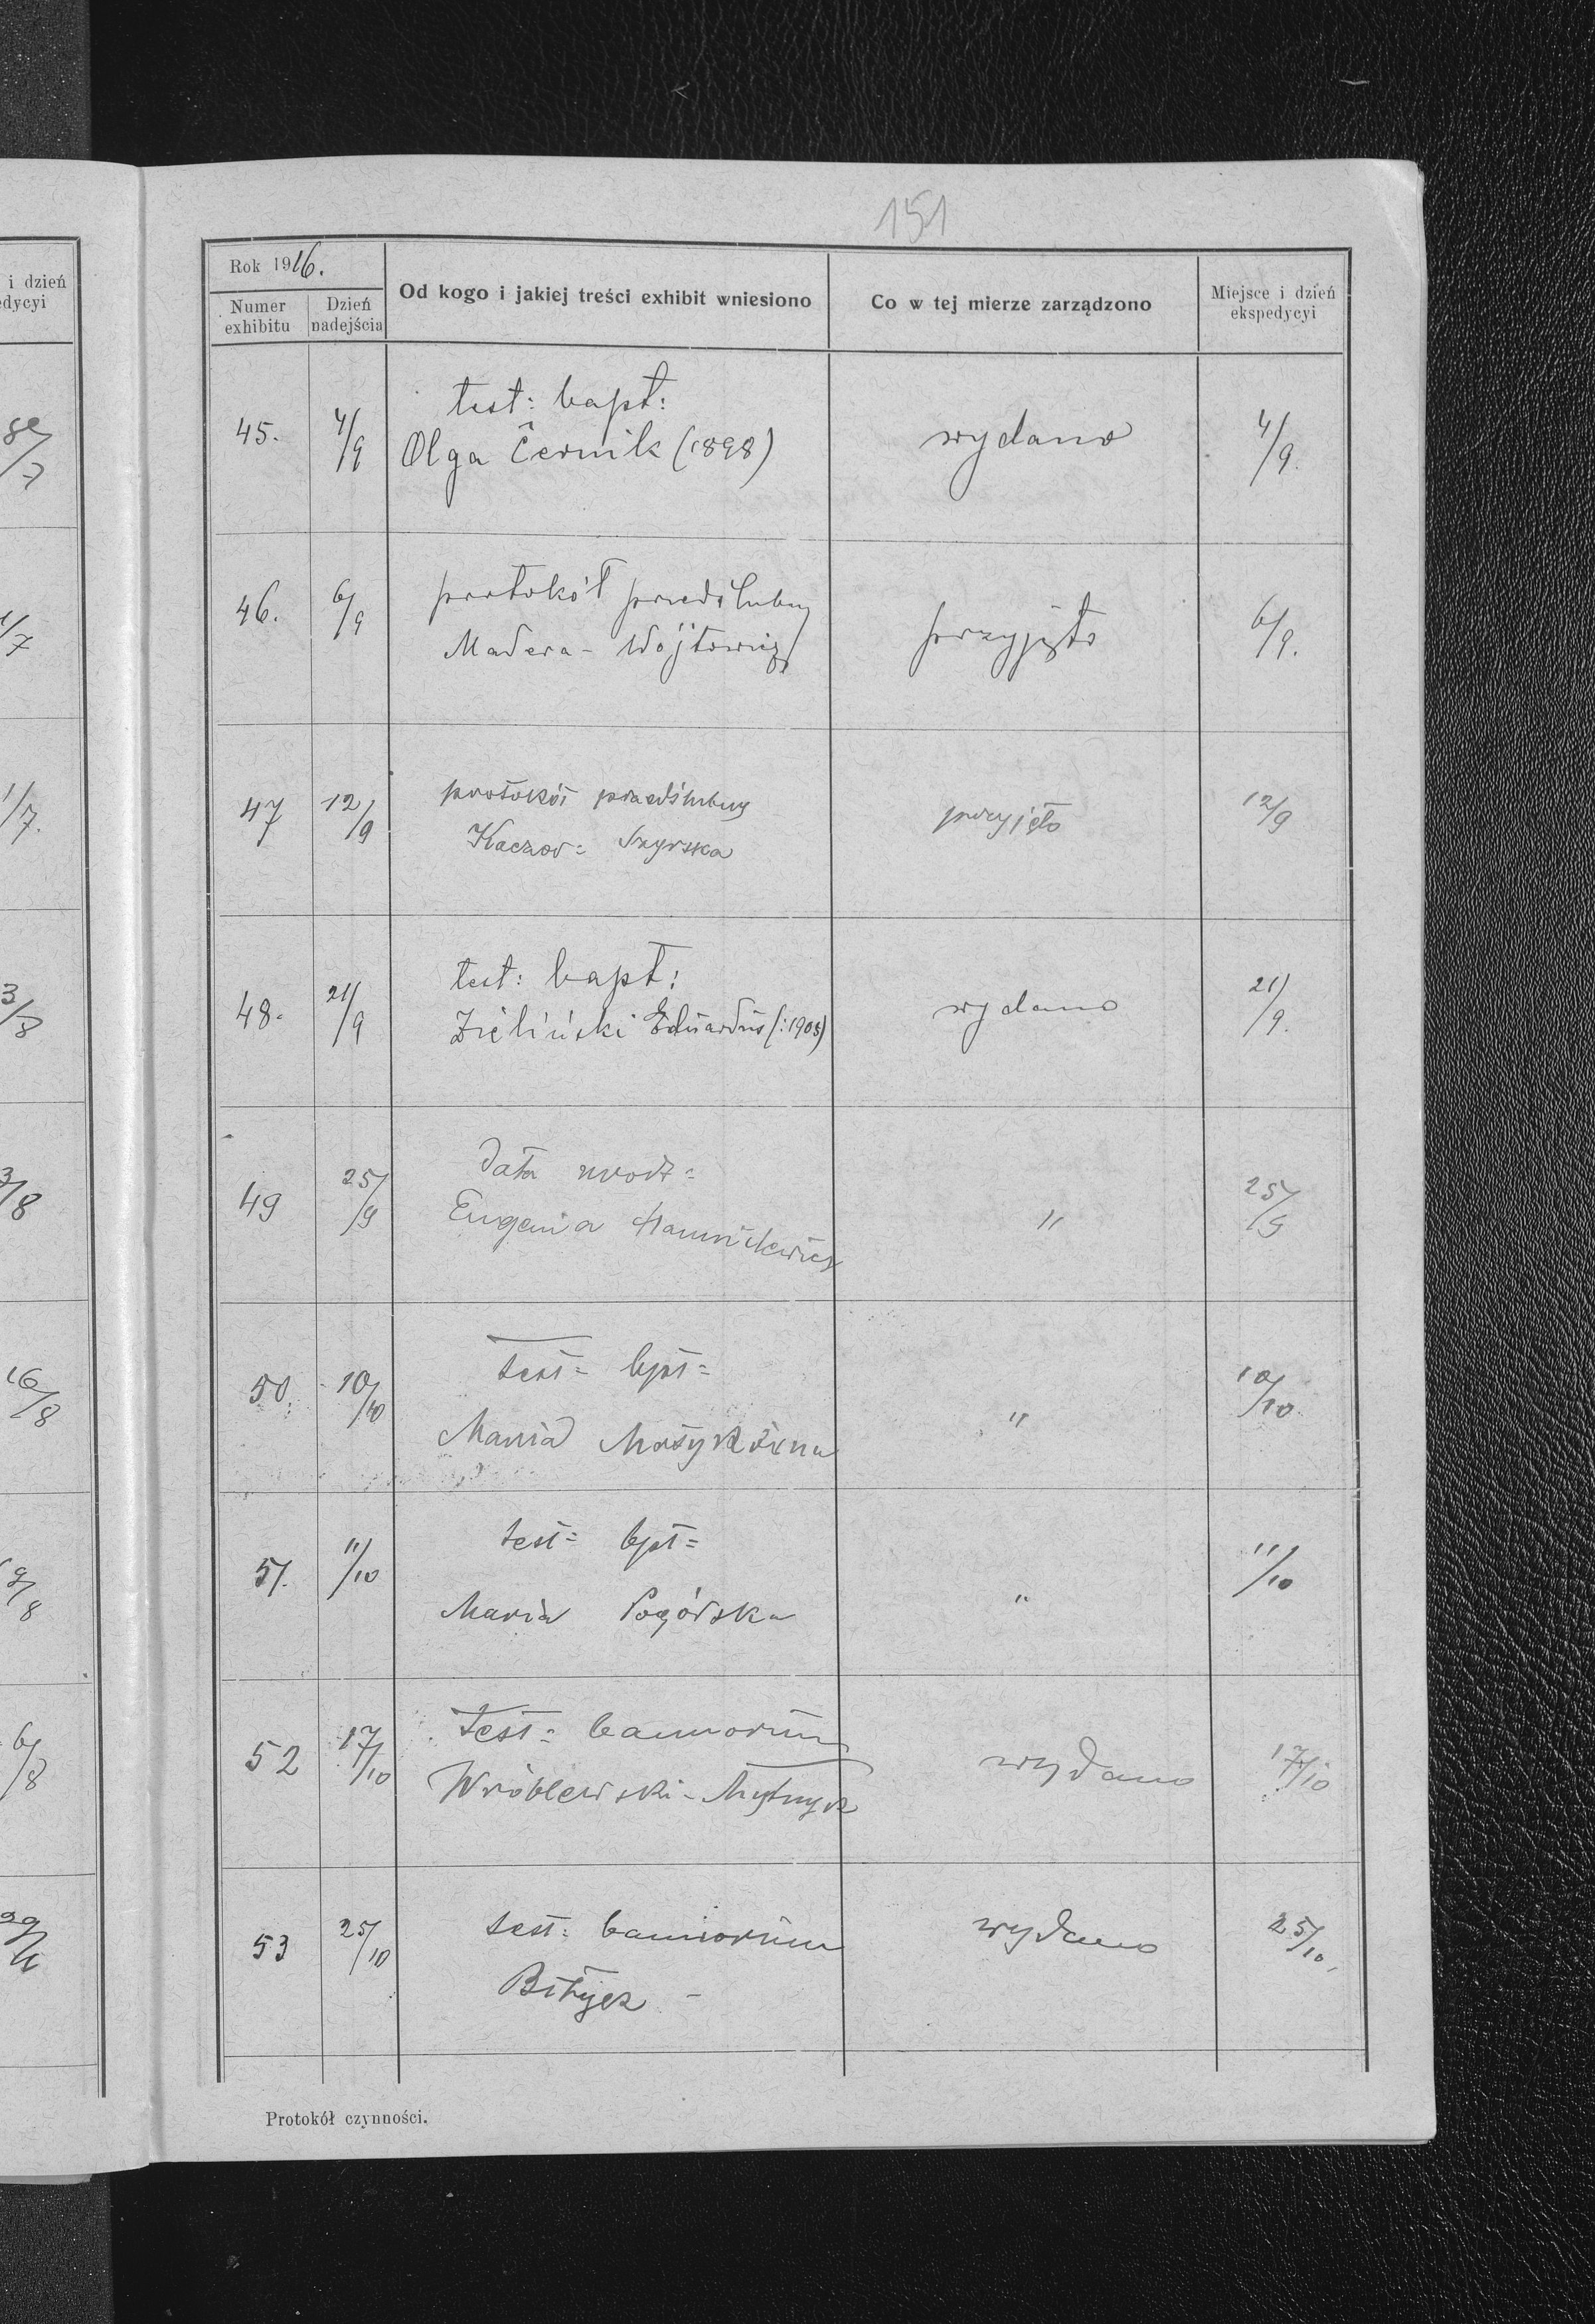 151
i dzień
edycyi
Rok 1916.
Numer exhibitu
Dzień nadejścia
Od kogo i jakiej treści exhibit wniesiono
Co w tej mierze zarządzono
Miejsce i dzień ekspedycyi
45. 4/9 test: bapt: wydano 4/9.
Olga Černik (1898)
46. 6/9 protokół przedślubny przyjęto 6/9.
Madera - Wójtowicz
47 12/9 protokół przedślubny przyjęto 12/9
Kaczor= Szyrska
48. 21/9 test: bapt: wydano 21/9.
Zieliński Eduardus (:1908)
49 25/9 data urodz= " 25/9
Eugenia
50. 10/10 test= bpt= " 10/10
Maria
51. 11/10 test= bpt= " 11/10
Maria Pogórska
52 17/10 test= bannorum wydano 17/10
Wróblewski -
53 25/10 test: bannorum wydano 25/10
Protokół czynności.